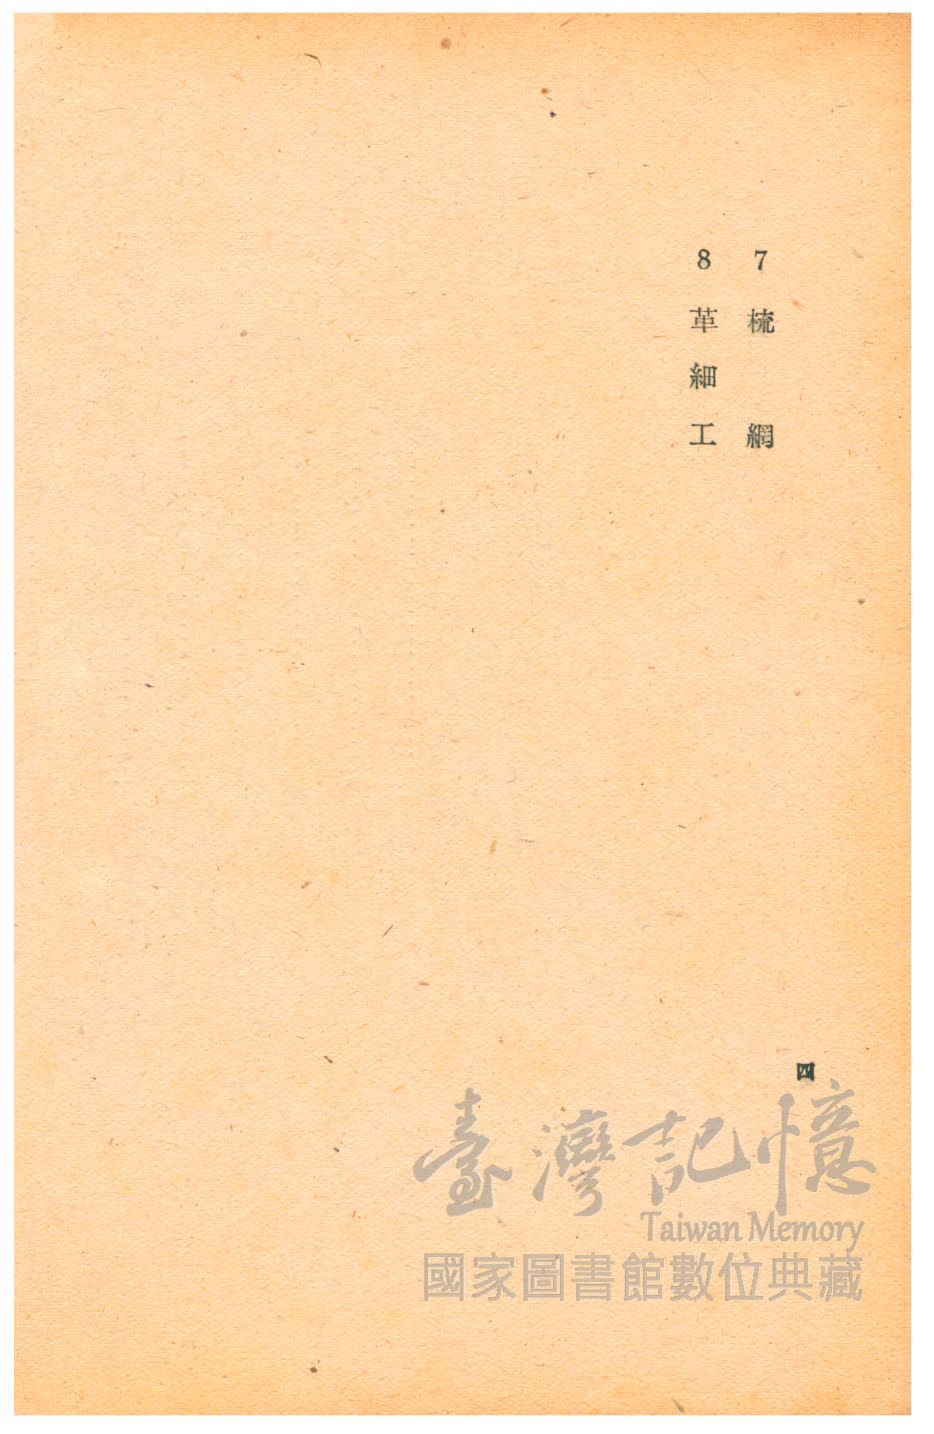 7 梳 網
8 革細工
四
臺灣記憶
Taiwan Memory
國家圖書館數位典藏